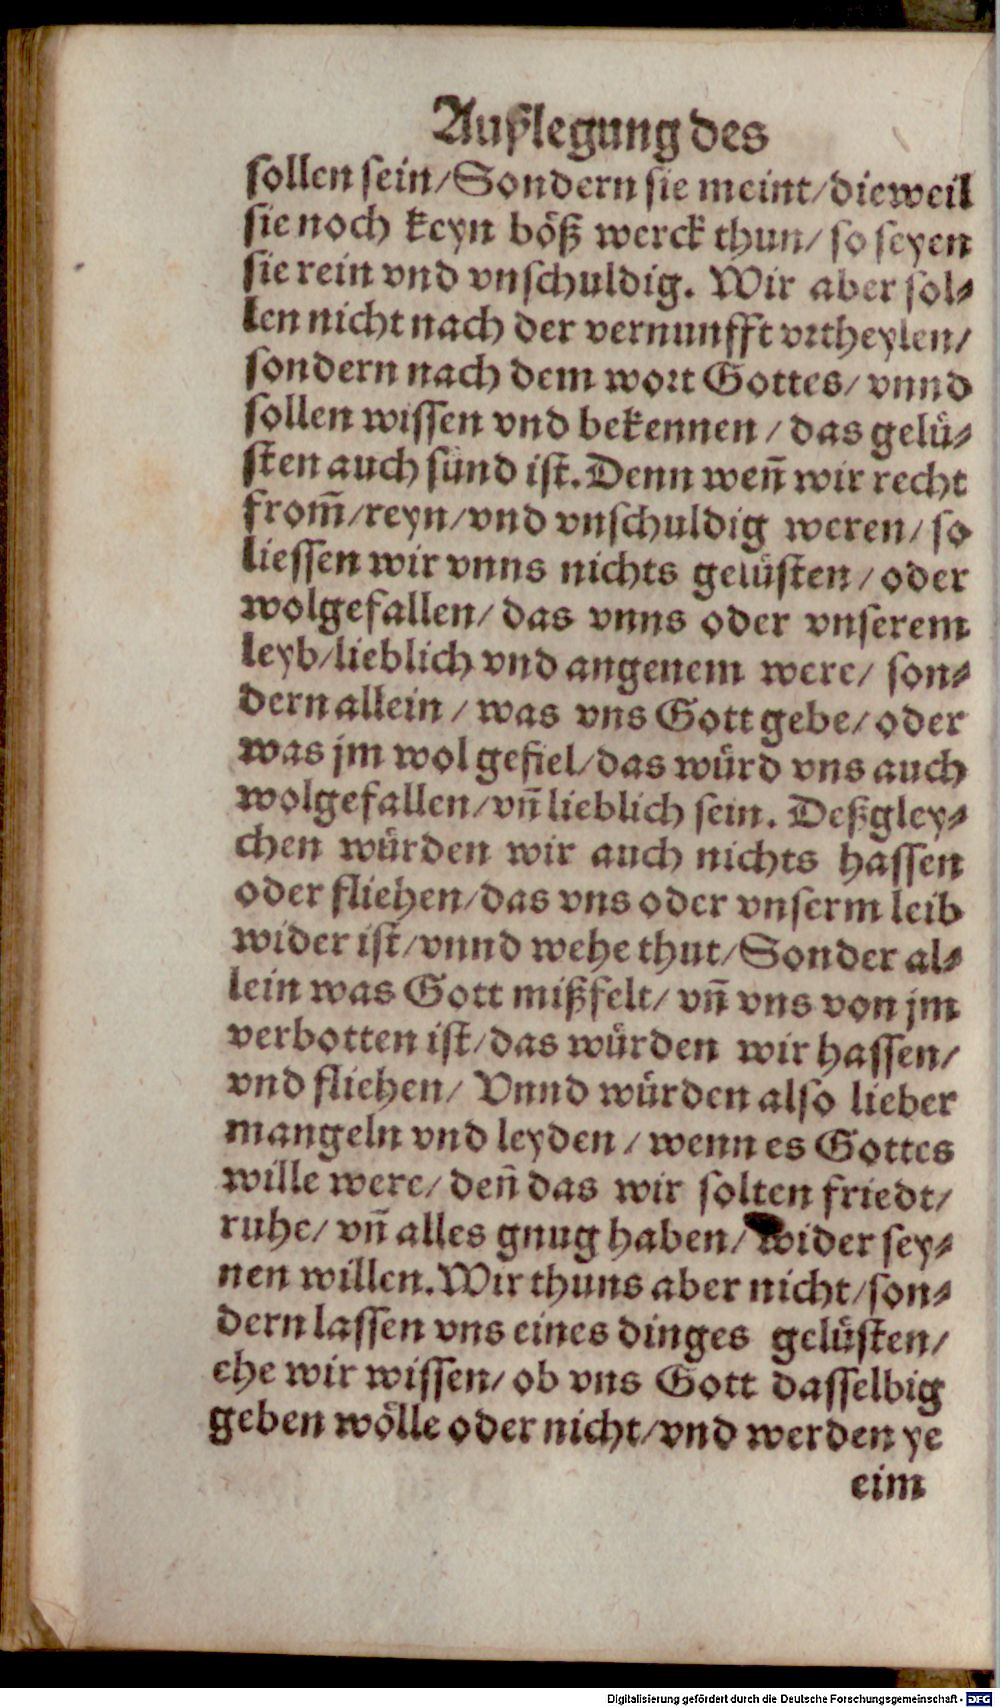 Außlegung des
sollen sein/Sondern sie meint/dieweil
sie noch keyn böß werck thun/ so seyen
sie rein vnd vnschuldig. Wir aber sol⸗
len nicht nach der vernunfft vrtheylen/
sondern nach dem wort Gottes/ vnnd
sollen wissen vnd bekennen / das gelü⸗
sten auch sünd ist. Denn weñ wir recht
from̃/reyn/vnd vnschuldig weren/ so
liessen wir vnns nichts gelüsten / oder
wolgefallen/ das vnns oder vnserem
leyb/lieblich vnd angenem were/ son⸗
dern allein / was vns Gott gebe/ oder
was jm wol gefiel/das würd vns auch
wolgefallen/vñ lieblich sein. Deßgley⸗
chen würden wir auch nichts hassen
oder fliehen/das vns oder vnserm leib
wider ist/vnnd wehe thut/Sonder al⸗
lein was Gott mißfelt/ vñ vns von jm
verbotten ist/das würden wir hassen/
vnd fliehen/ Vnnd würden also lieber
mangeln vnd leyden / wenn es Gottes
wille were/ deñ das wir solten friedt/
ruhe/ vñ alles gnug haben/ wider sey⸗
nen willen. Wir thuns aber nicht/son⸗
dern lassen vns eines dinges gelüsten/
ehe wir wissen/ ob vns Gott dasselbig
geben wölle oder nicht/vnd werden ye
eim
Digitalisierung gefördert durch die Deutsche Forschungsgemeinschaft - DFG